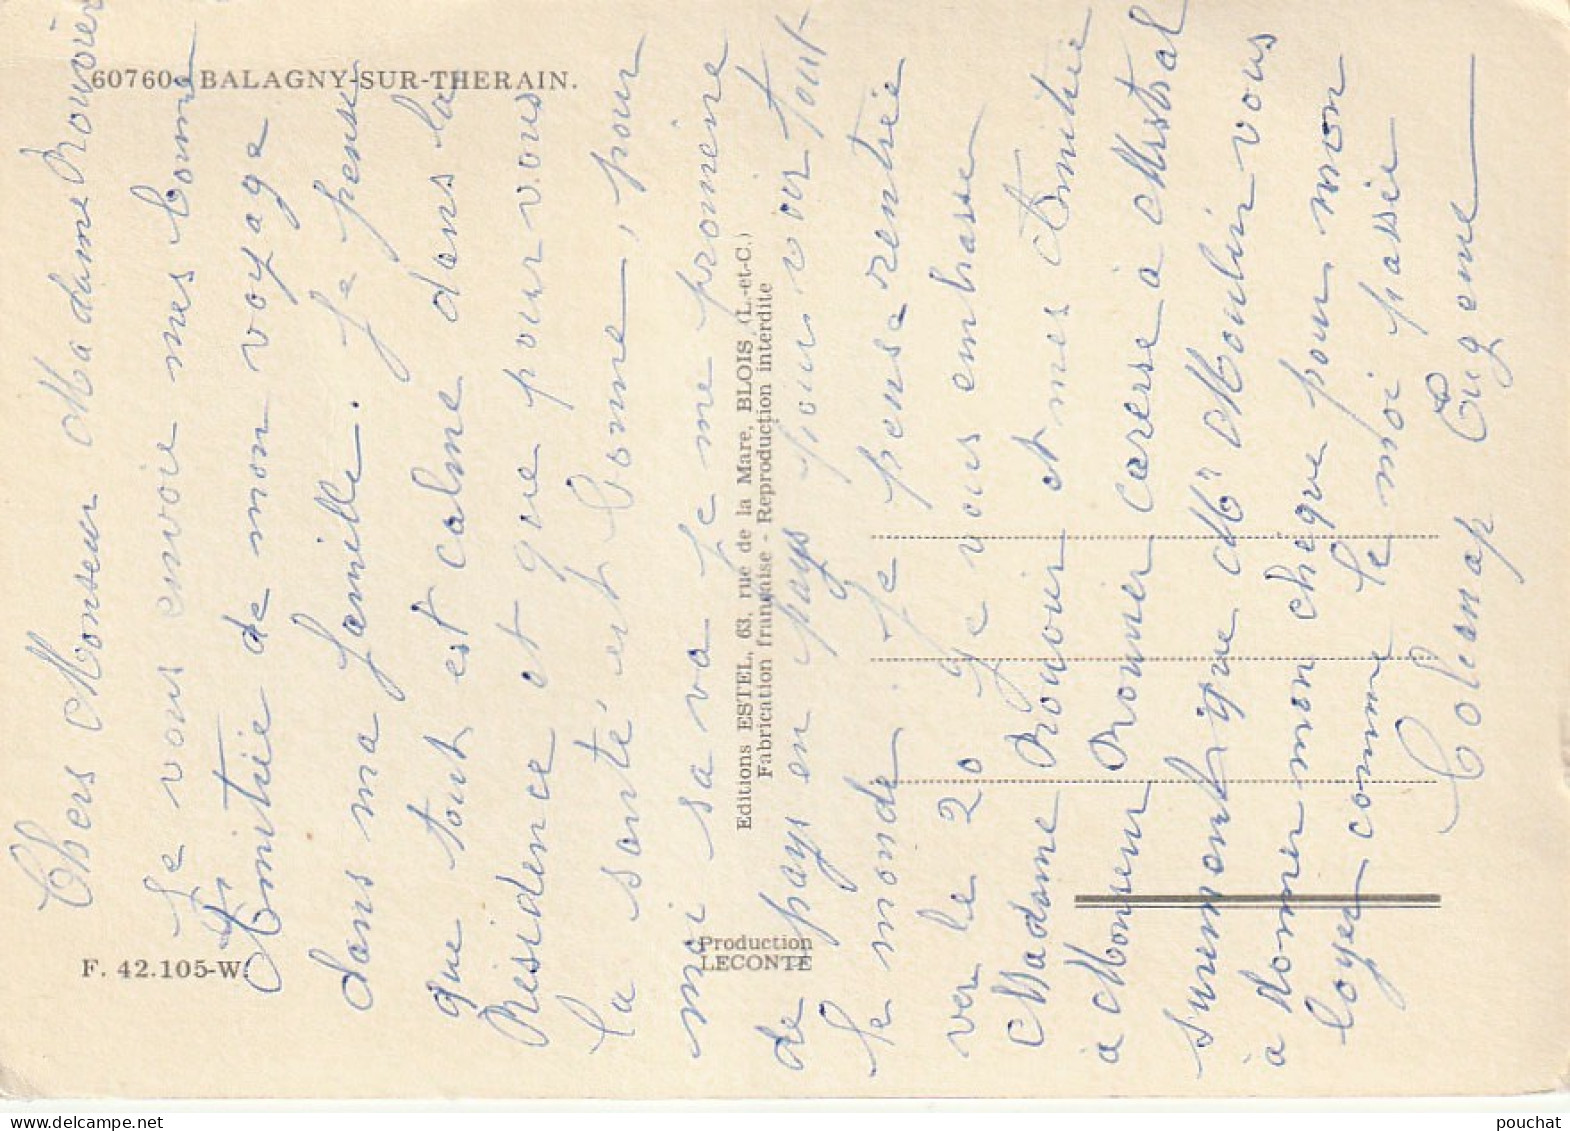 60760 - BALAGNY-SUR-THERAIN.
Chers Monseur Madame Rouvier
Je vous envoie mes bonne
Amitie de mon voyage
dans ma famille. Je pense
que tout est calme dans la
Residence et que pour vous
la santé est bonne, pour
moi sa va je me promene
de pays en pays pour voir tout
le monde. Je pense rentrie
ver le 20 Je vous embrasse
Madame Rouvier et mes Amitie
à Monseur Rouvier carresse à Mistral
à donner mon chèque pour mon
loyer comme le moi passée
Eugene
Editions ESTEL, 63, rue de la Mare, BLOIS (L.-et-C.)
Fabrication française - Reproduction interdite
F. 42.105-W.
Production
LECONTE
pouchat